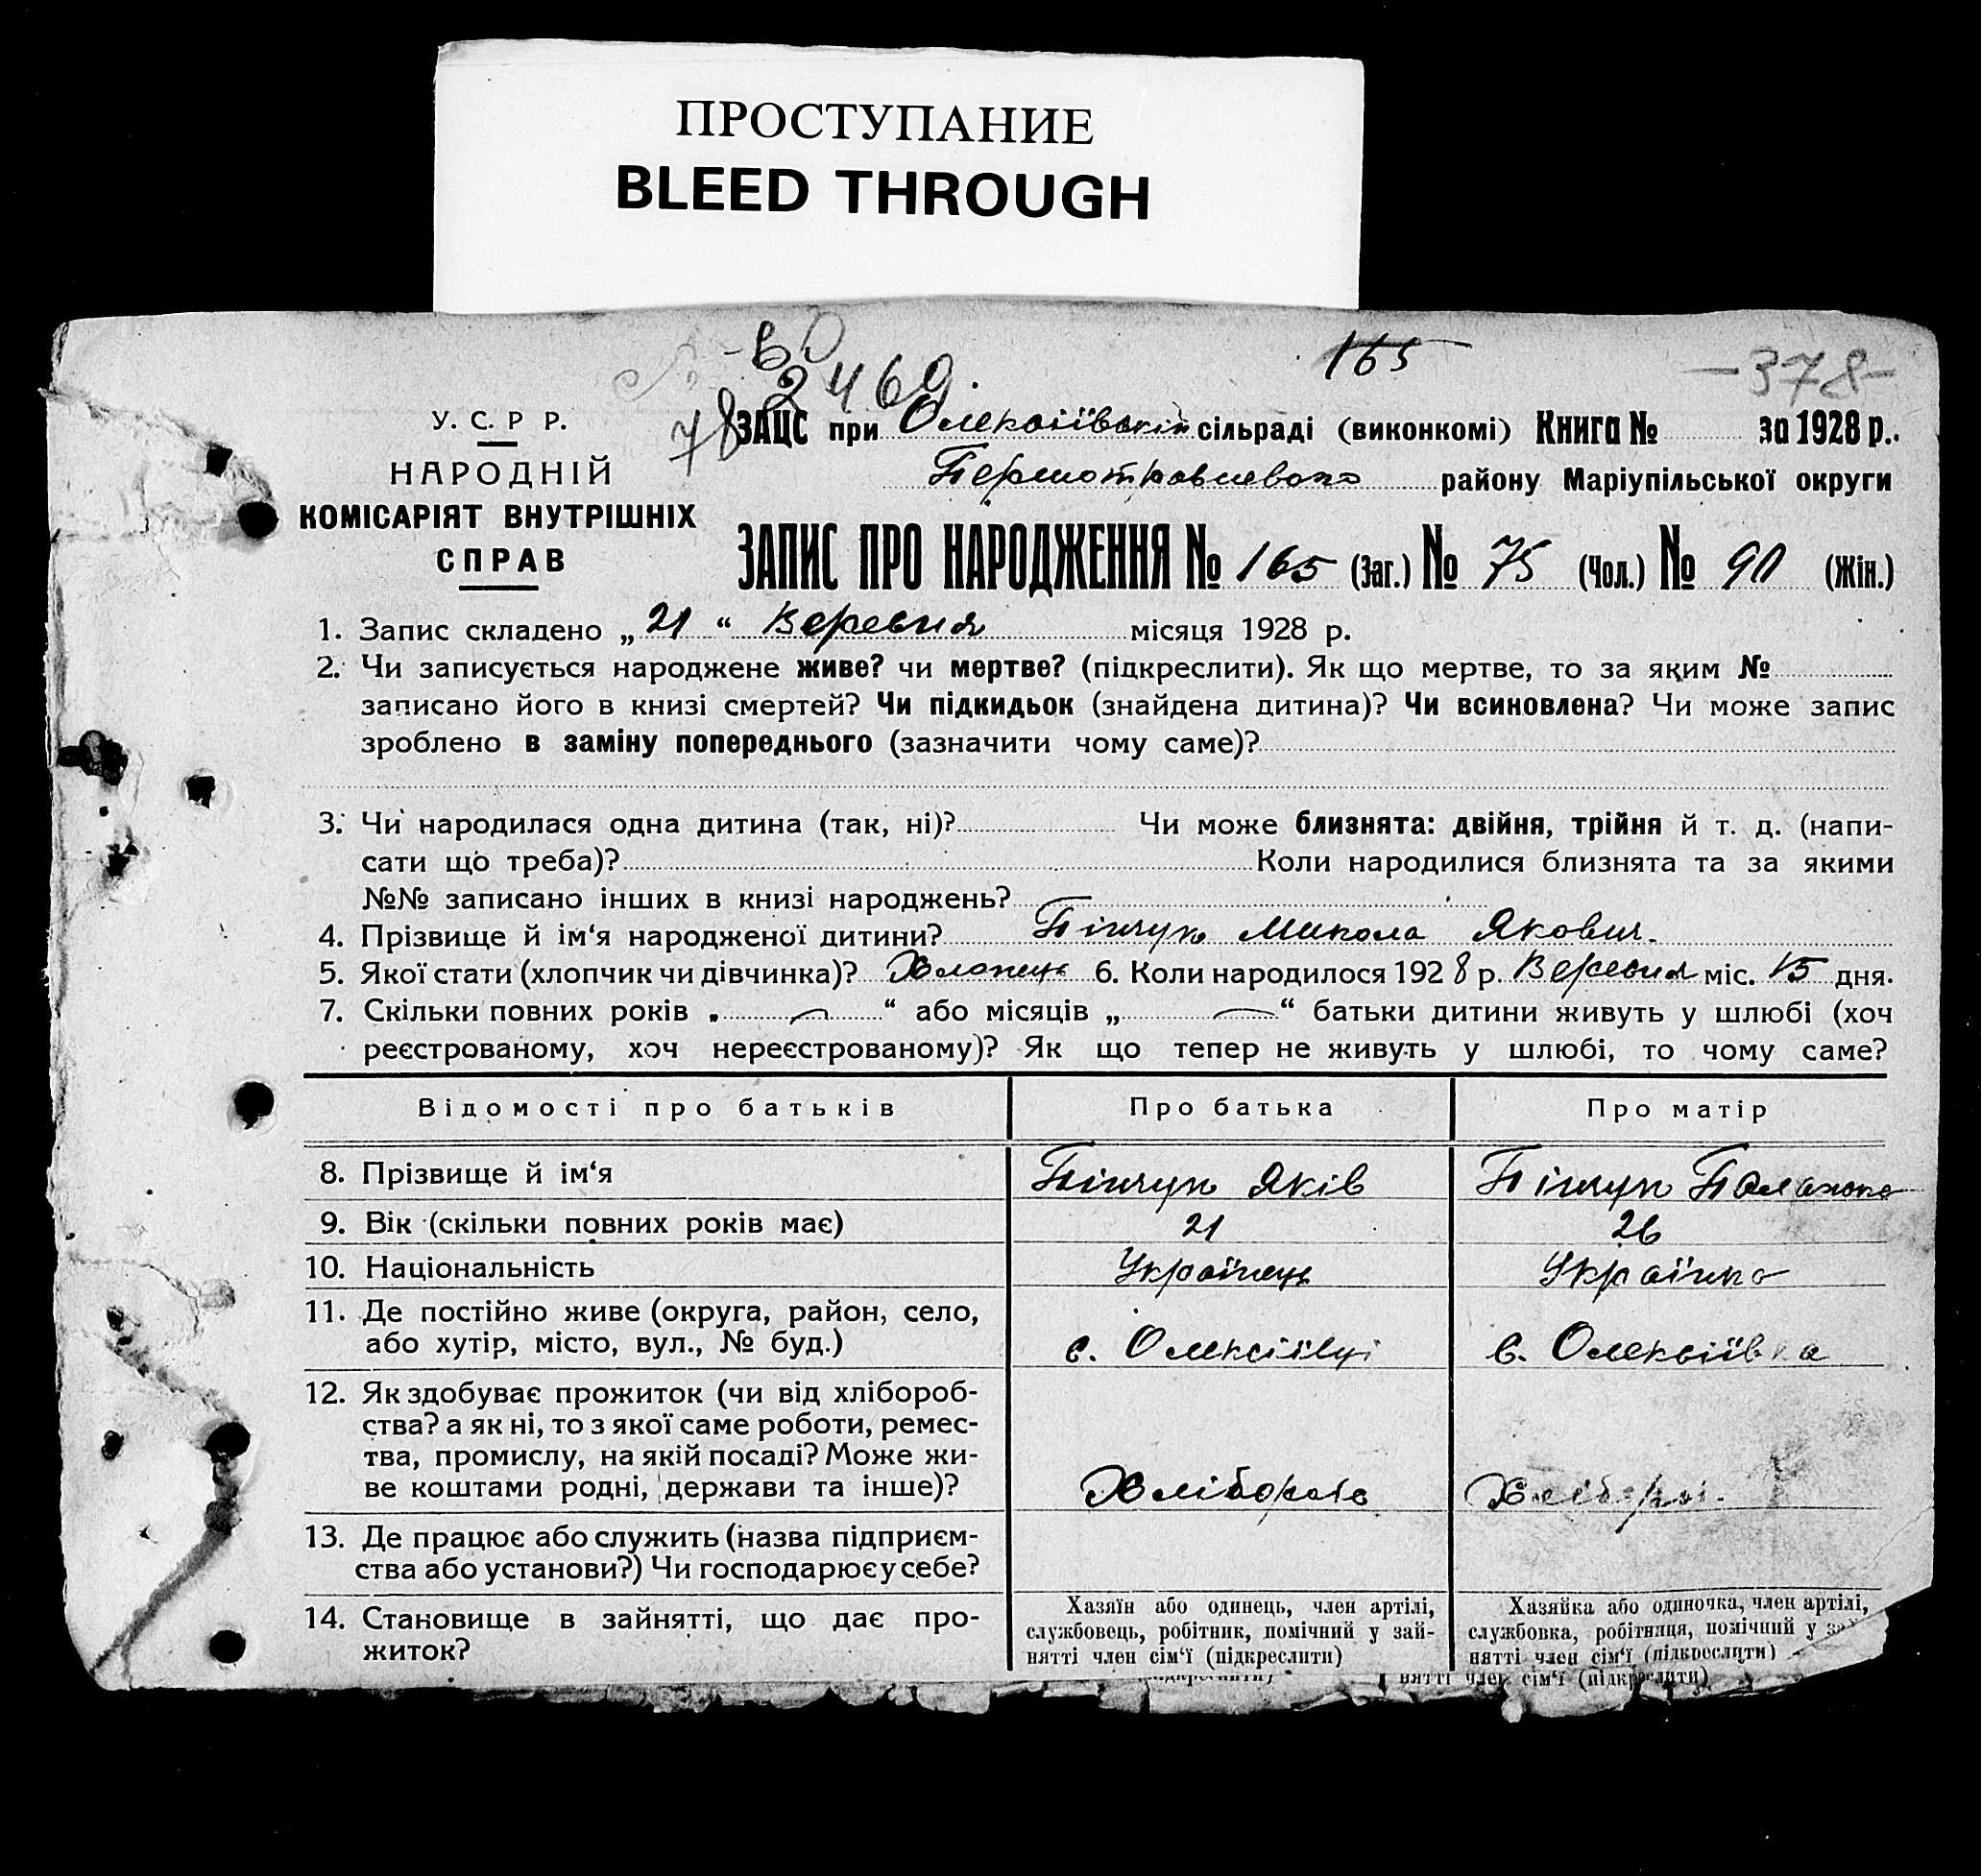 ПРОСТУПАНИЕ
BLEED THROUGH
165
-378-
2460
78
У. С. Р Р.
НАРОДНІЙ
КОМІСАРІЯТ ВНУТРІШНІХ
СПРАВ
ЗАЦС при Олексіївській сільраді (виконкомі) Книга № за 1928 р.
Першотравневого району Маріупільської округи
ЗАПИС ПРО НАРОДЖЕННЯ № 165 (Заг.) № 75 (Чол.) № 90 (Жін.)
1. Запис складено „ 21 “ Вересня місяця 1928 р.
2. Чи записується народжене живе? чи мертве? (підкреслити). Як що мертве, то за яким №
записано його в книзі смертей? Чи підкидьок (знайдена дитина)? Чи всиновлена? Чи може запис
зроблено в заміну попереднього (зазначити чому саме)?
3. Чи народилася одна дитина (так, ні)? Чи може близнята: двійня, трійня й т. д. (напи-
сати що треба)? Коли народилися близнята та за якими
№№ записано інших в книзі народжень?
4. Прізвище й ім‘я народженої дитини? Пінчук Микола Якович.
5. Якої стати (хлопчик чи дівчинка)? Хлопець 6. Коли народилося 1928 р. Вересня міс. 15 дня.
7. Скільки повних років „ “ або місяців „ “ батьки дитини живуть у шлюбі (хоч
реєстрованому, хоч нереєстрованому)? Як що тепер не живуть у шлюбі, то чому саме?
Відомості про батьків Про батька Про матір
8. Прізвище й ім‘я Пінчук Яків Пінчук
9. Вік (скільки повних років має) 21 26
10. Національність Українець Українка
11. Де постійно живе (округа, район, село,
або хутір, місто, вул., № буд.) с. Олексіївці с. Олексіївка
12. Як здобуває прожиток (чи від хлібороб-
ства? а як ні, то з якої саме роботи, ремес-
тва, промислу, на якій посаді? Може жи-
ве коштами родні, держави та інше)? Хлібороб
13. Де працює або служить (назва підприєм-
ства або установи?) Чи господарює у себе?
14. Становище в зайнятті, що дає про-
житок?
Хазяїн або одинець, член артілі,
службовець, робітник, помічний у зай-
нятті член сім‘ї (підкреслити)
Хазяйка або одиночка, член артілі,
службовка, робітниця, помічний у зай-
нятті член сім‘ї (підкреслити)
нятті член сім‘ї (підкреслити)